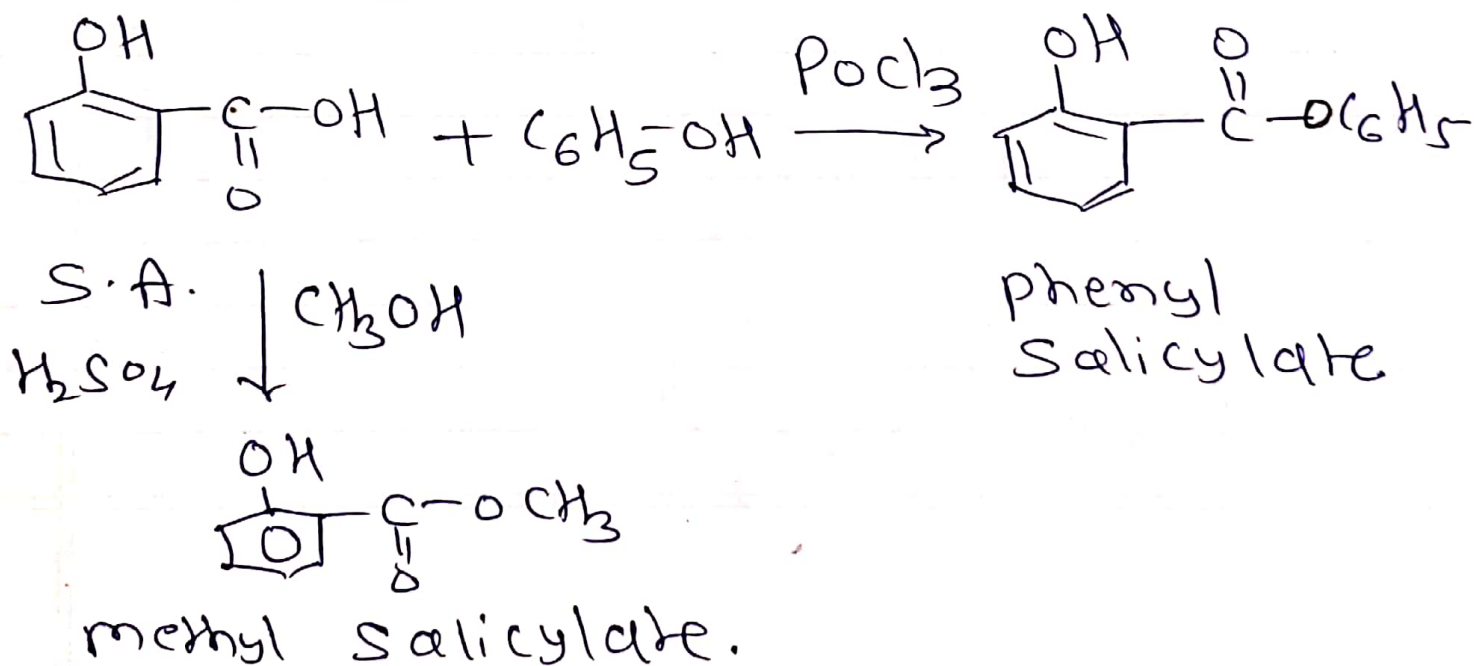 OH
C-OH
O
+ C6H5-OH
POCl3
OH
O
C-OC6H5
S.A.
H2SO4
CH3OH
phenyl
salicylate
OH
C-O CH3
O
methyl salicylate.